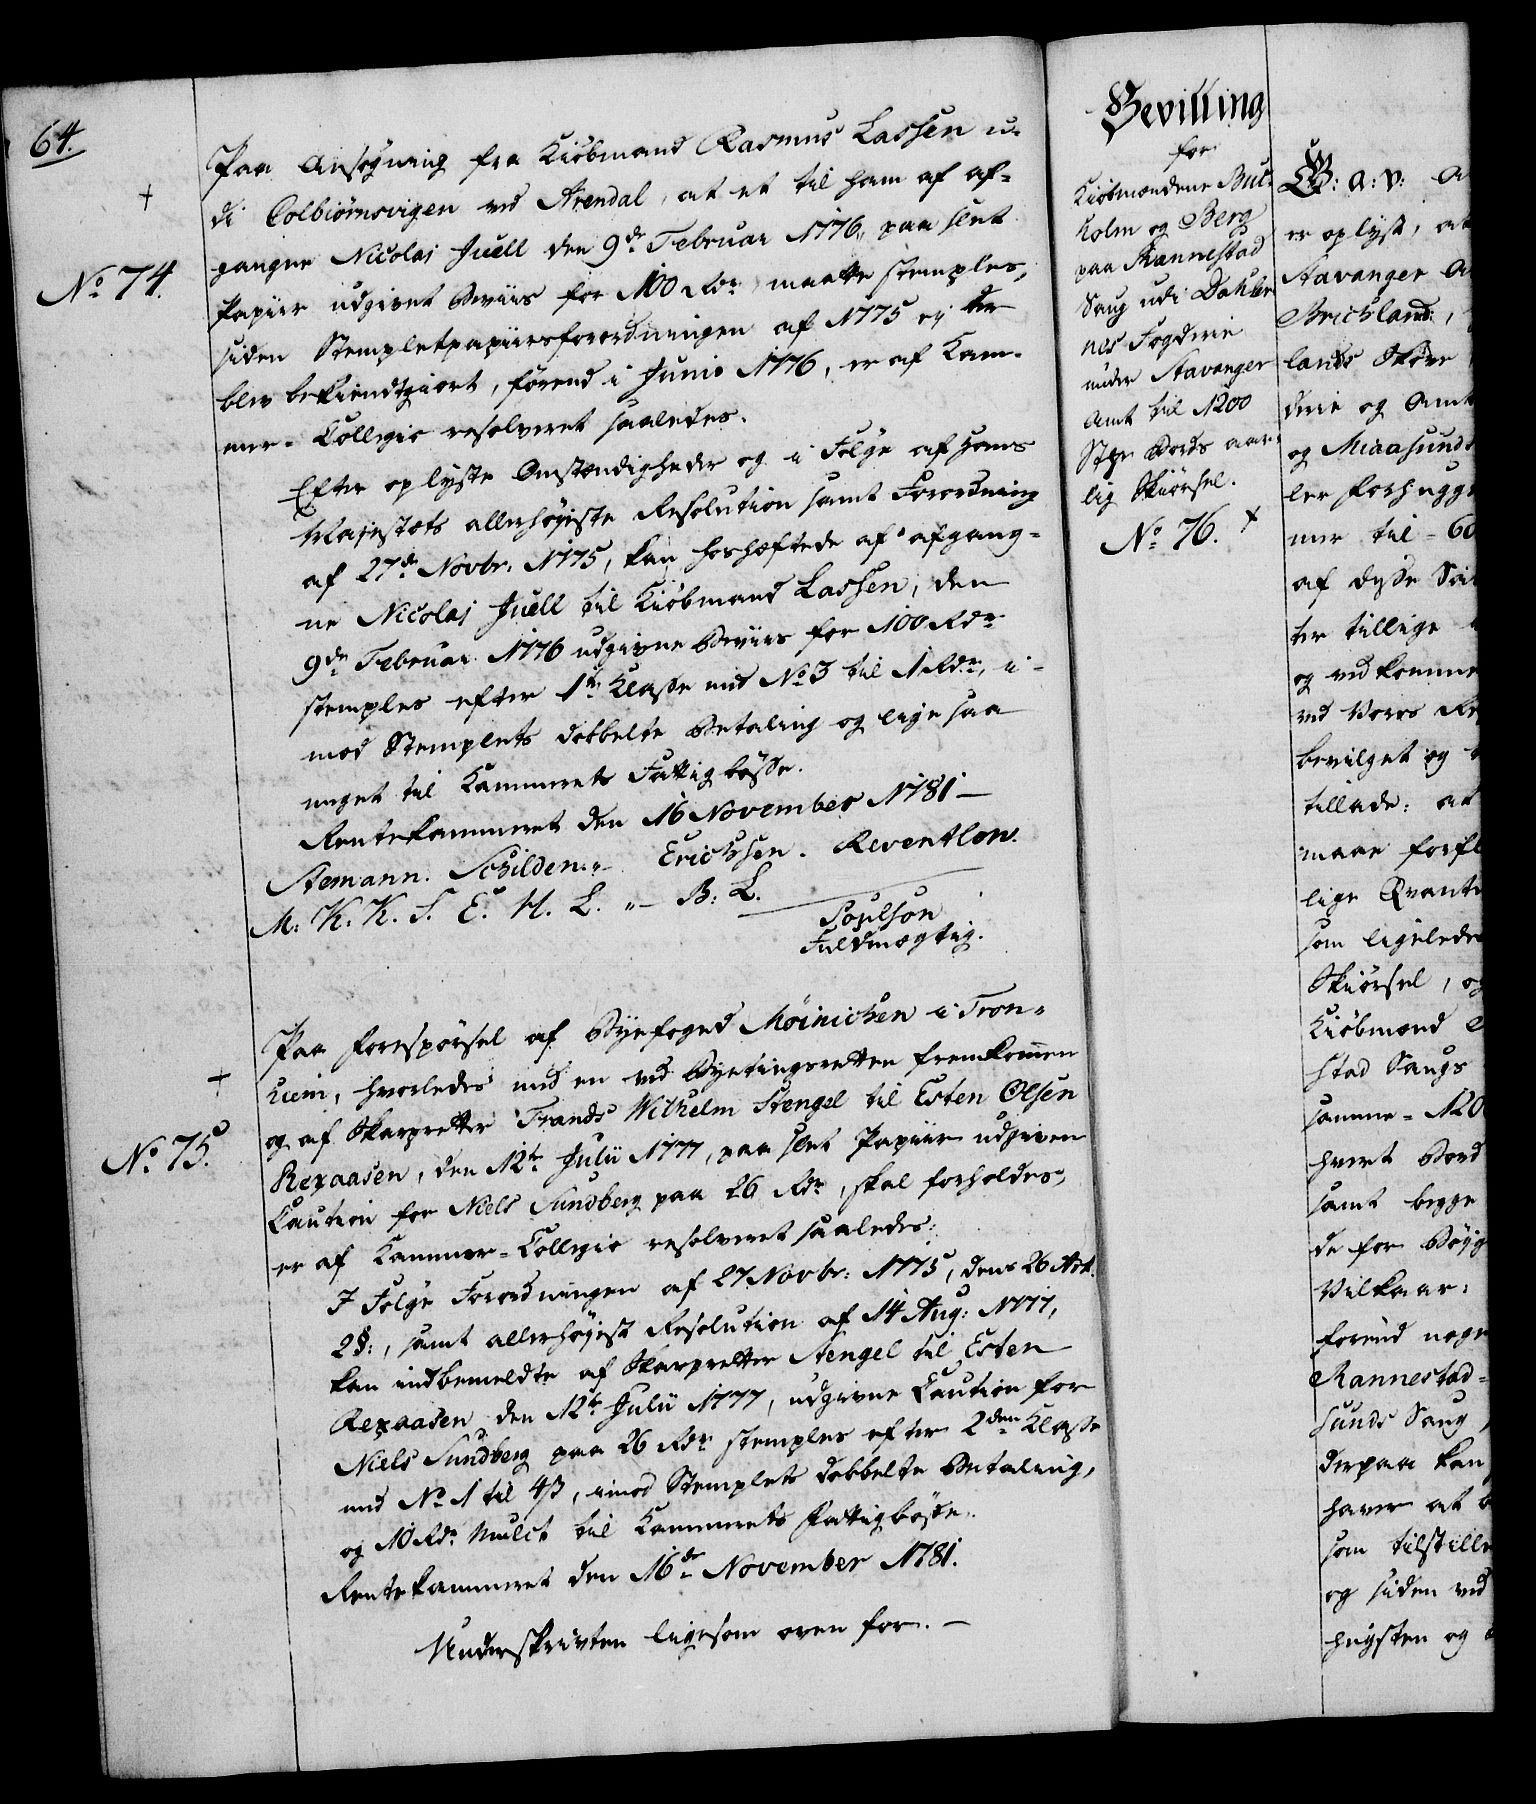 64.
+
No. 74.
Paa Ansøgning fra Kiöbmand Rasmus Lassen u-
di Colbiörnsvigen ved Arendal, at et til ham af af-
gangne Nicolaj Juell den 9de Februar 1776, paa slet
Papiir udgivet Beviis for 100 Rdr. maatte stemples,
siden Stempletpapiirsforordningen af 1775 ej der
blev bekiendtgiort, förend i Junio 1776, er af Kam-
mer-Collegie resolveret saaledes.
Efter oplyste Omstændigheder og i Følge af Hans
Majestæts allerhøjeste Resolution samt Forordning
af 27de Novbr. 1775, kan hoshæftede af afgang-
ne Nicolaj Juell til Kiöbmand Lassen, den
9de Februar 1776 udgivne Beviis for 100 Rdr.
stemples efter 1te Klasse med No. 3 til 1 Rdr., i-
mod Stemplets dobbelte Betaling og lige saa
meget til Kammerets Fattigbösse.
Rentekammeret den 16 November 1781 —
Stemann. Schilden. — Erichsen. Reventlow.
M. K. K. S. E. H. L. — B. L.
Poulson
Fuldmægtig.
+
No. 75.
Paa Forespörsel af Byefoged Möinichen i Tron-
hiem, hvorledes med en ved Byetingsretten fremkommen
og af Skarpretter Frands Wilhelm Stengel til Esten Olsen
Rexaasen, den 12te Julii 1777, paa slet Papiir udgiven
Caution for Niels Sundberg paa 26 Rdr., skal forholdes,
er af Kammer-Collegie resolveret saaledes:
I Følge Forordningen af 27 Novbr. 1775, dens 26 Art.
2 §., samt allerhøjest Resolution af 14 Aug: 1777,
kan indbemeldte af Skarpretter Stengel til Esten
Rexaasen den 12te Julii 1777, udgivne Caution for
Niels Sundberg paa 26 Rdr. stemples efter 2den Klasse
med No. 1 til 4 ß, imod Stemplets dobbelte Betaling,
og 10 Rdr. Mulct til Kammerets Fattigbösse.
Rentekammeret den 16de November 1781.
Underskrivten ligesom oven for. —
Bevilling
for
Kiöbmændene Buc-
holm og Berg
paa Rannestad
Saug udi Dahler-
nes Fogderie
under Stavanger
Amt til 1200
Stkr. Bords aar-
lig Skiörsel.
No. 76. +
G: a: v: A
er oplyst, at
Stavanger A
Birchland,
lands Skove
derie og Amt
og Miaasunds
ler forhugge
mer til - 60
af disse Sau
ter tillige
og vedkomme
ved Vores Re
bevilget og
tillade: at
maae forfl
lige Qvant
som ligelede
Skiörsel, og
Kiöbmænd
stad Saugs
samme - 120
hvert Bord
samt begge
de for Böyg
Vilkaar:
forend noge
Rannestad-
sunds Saug,
derpaa kan
haver at
som tilstille
og siden ved
hugsten og